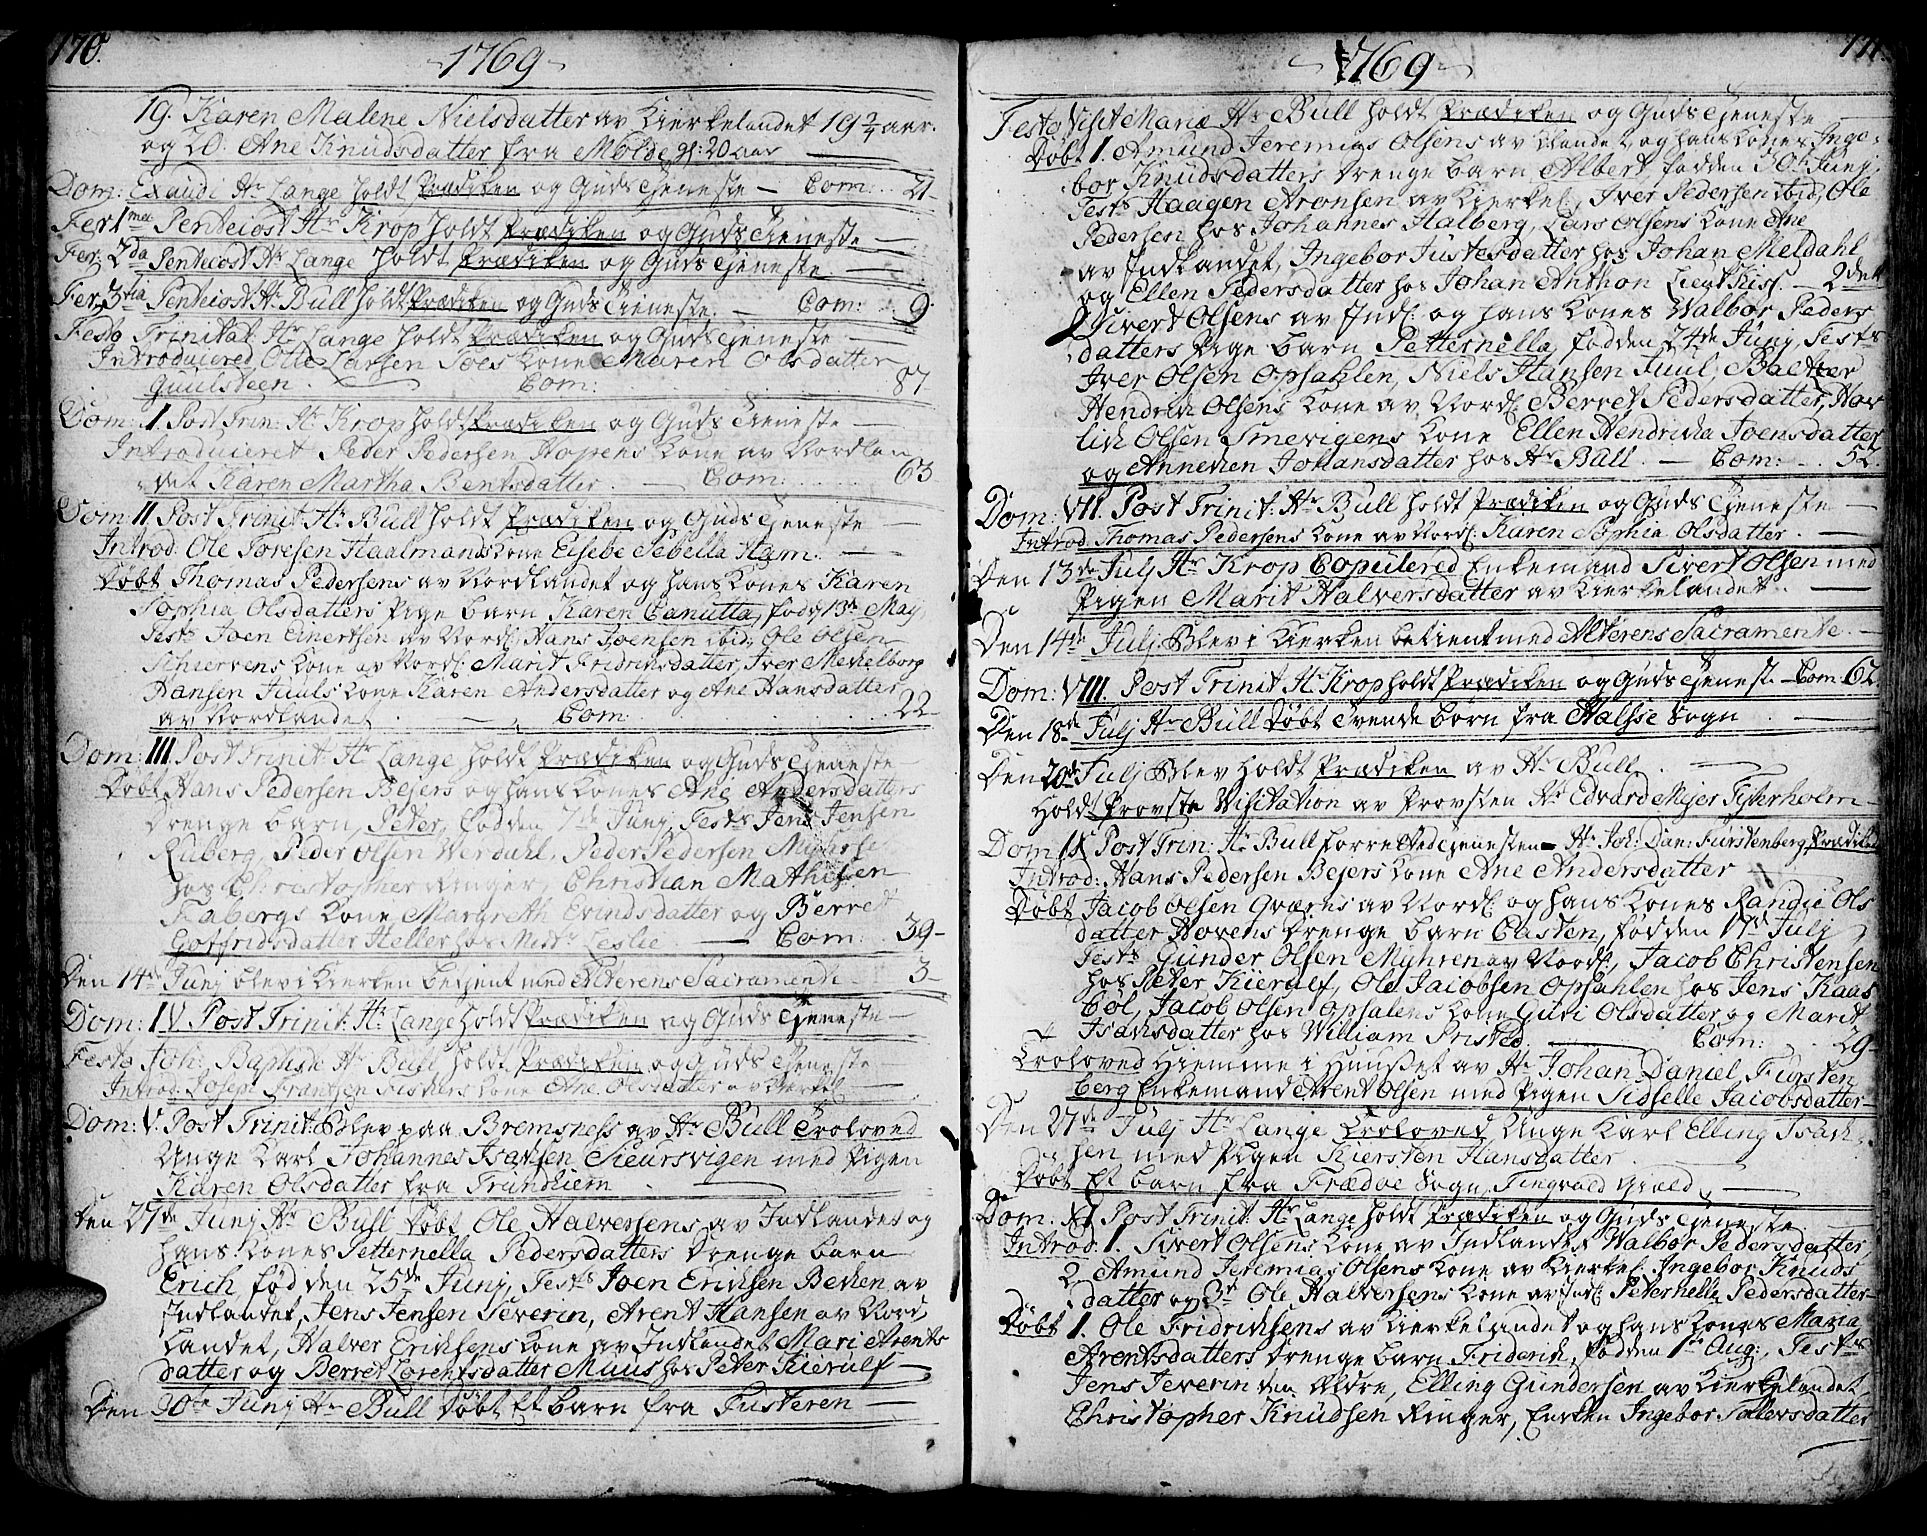 170.
-1769-
19. Karen Malene Nielsdatter av Kierkelandet 19 2/4 aar.
og 20. Ane Knudsdatter fra Molde gl: 20 aar
Dom: Exaudi Hr Lange holdt Prædiken og Guds Tieneste - Com: 21-
Fer 1mæ Penteiost Hr Krop holdt Prædiken og Guds Tieneste -
Fer: 2da Pentecost Hr Lange holdt Prædiken og Guds Tieneste -
Fer: 3tia Penteiost Hr Bull holdt Prædiken og Guds Tieneste. - Com: 9
Festo Trinitat: Hr Lange holdt Prædiken og Guds Tieneste -
Introduiered Olle Larsen Toes Kone Maren Olsdatter
Guulsteen. Com: 87
Dom: I Post Trin: Hr Krop holdt Prædiken og Guds Tieneste -
Introduieret Peder Pedersen Hopens Kone av Nordlan
det Karen Martha Bentsdatter - Com: 63
Dom: II Post Trinit Hr Bull holdt Prædiken og Guds Tieneste -
Introd: Ole Toresen Haalmands Kone Elsebe Sebella Ham. -
Døbt Thomas Pedersens av Nordlandet og hans Kones Karen
Sophia Olsdatters Pige barn Karen Canutta, fød 13de Maij,
Tests Joen Einertsen av Nordl: Hans Joensen ibid, Ole Olsen
Schiervens Kone av Nordl: Marit Fridrichsdatter, Iver Mechelborg
Hansen Juuls Kone Karen Andersdatter og Ane Hansdatter
av Nordlandet. - Com: 22
Dom: III Post Trinit Hr Lange holdt Prædiken og Guds Tieneste -
Døbt Hans Pedersen Bejers og hans Kones Ane Andersdatters
Drenge barn, Peter, fødden 7de Junj, Tests Jens Jensen
Ruberg, Peder Olsen Werdahl, Peder Pedersen
hos Christopher Ringer, Christian Mathisen
Fabergs Kone Margreth Evindsdatter og Berret
Gotfridsdatter Heller hos Mistr Leslie - Com: 39-
Den 14de Junj blev i Kierken betjent med Alterens Sacramente 3-
Dom: IV. Post Trinit: Hr Lange holdt Prædiken og Guds Tjeneste -
Festo Joh: Baptist: Hr Bull holdt Prædiken og Guds Tjeneste
Introd: Joseph Frantzen Fischers Kone Ane Olsdatter av Kierkel -
Dom: V. Post Trinit: Blev paa Bremsness av Hr Bull Troloved
Unge Karl Johannes Isachsen Sieursvigen med Pigen
Karen Olsdatter fra Trundhiem.
Den 27de Junj Hr Bull Døbt Ole Halversens av Indlandet og
hans Kones Petternella Pedersdatters Drenge barn
Erich, fødden 25de Junj, Tests Joen Erichsen Bechen av
Indlandet, Jens Jensen Severin, Arent Hansen av Nord,
Landet, Halver Erichsens Kone av Indlandet Mari Arents
datter og Berret Lorentsdatter Maus hos Peter Kierulf -
Den 30te Junj Hr Bull Døbt Et barn fra Tusteren -
171.
-1769-
Festo Visit Mariæ Hr Bull holdt Prædiken og Guds Tieneste
Døbt 1. Amund Jeremias Olsens av og hans Kones Inge-
bor Knudsdatters Drenge barn Albert, fødden 30te Junj,
Tests Haagen Aronsen av Kierkel, Iver Pedersen ibid, Ole
Pedersen hos Johannes Halberg, Lars Olsens Kone Ane
av Indlandet, Ingebor Justesdatter hos Johan Meldahl
og Ellen Pedersdatter hos Johan Anthon Lieut Kiss. - 2det
Sivert Olsens av Indl: og hans Kones Walbor Peders
datters Pige barn Petternella, fødden 24de Junj, Tests
Iver Olsen Opsahlen, Niels Hansen Juul, Baltzer
Hendrich Olsens Kone av Nordl: Berret Pedersdatter, Hov
lich Olsen Smevigens Kone Ellen Hendricha Joensdatter
og Annechen Johansdatter hos Hr Bull. - Com: 52.
Dom: VII. Post Trinit: Hr Bull holdt Prædiken og Guds Tjeneste -
Introd: Thomas Pedersens Kone av Nord: Karen Sophia Olsdatter. -
Den 13de Julj Hr Krop Copulered Enkemand Sivert Olsen med
Pigen Marit Halversdatter av Kierkelandet. -
Den 14de Julj Blev i Kierken betient med Alterens Sacramente. -
Dom: VIII. Post Trinit Hr Krop holdt Prædiken og Guds Tjenest - Com: 62.
Den 18de Julj Hr Bull Døbt Tvende børn fra Halsse Sogn -
Den 20de Julj Blev holdt Prædiken av Hr Bull. -
Holdt Provste Visitation av Provsten Hr Edvard Mejer Tyterholm -
Dom IX Post Trin: Hr Bull forrettet Tjenesten - Hr Joh: Dan: Fürstenberg Prædiked
Introd: Hans Pedersen Bejers Kone Ane Andersdatter
Døbt Jacob Olsen Qværnes av Nord: og hans Kones Randie Ols
datter Hovens Drenge barn Casten, fødden 17de Julj
Tests Gunder Olsen Myhren av Nordl, Jacob Christensen
hos Peter Kierulf, Ole Jacobsen Opsahlen hos Jens Kaas
Bøl, Jacob Olsen Opsalens Kone Guri Olsdatter og Marit
Isachsdatter hos William Pristed. - Com: 29-
Troloved Hiemme i Huusset av Hr Johan Daniel Fürsten
berg Enkemand Arent Olsen med Pigen Sidselle Jacobsdatter -
Den 27de Julj Hr Lange Troloved Unge Karl Elling Isach-
sen med Pigen Kiersten Hansdatter
Døbt Et barn fra Frædøe Sogn, Tingvold Gield, -
Dom: XI Post Trinit: Hr Lange holdt Prædiken og Guds Tjeneste
Introd: 1. Sivert Olsens Kone av Indlandet Walbor Pedersdatter,
2. Amund Jeremias Olsens Kone av Kierkel Ingebor Knuds
datter og 3de Ole Halversens Kone av Indl: Peternella Pedersdatter -
Døbt 1. Ole Fridrichsens av Kierkelandet og hans Kones Maria
Arentsdatters Drenge barn Friderich, fødden 1ste Aug:, Tests
Jens Severin den Ældre, Elling Gundersen av Kierkelandet,
Christopher Knudsen Ringer, Enken Ingebor Tollevsdatter